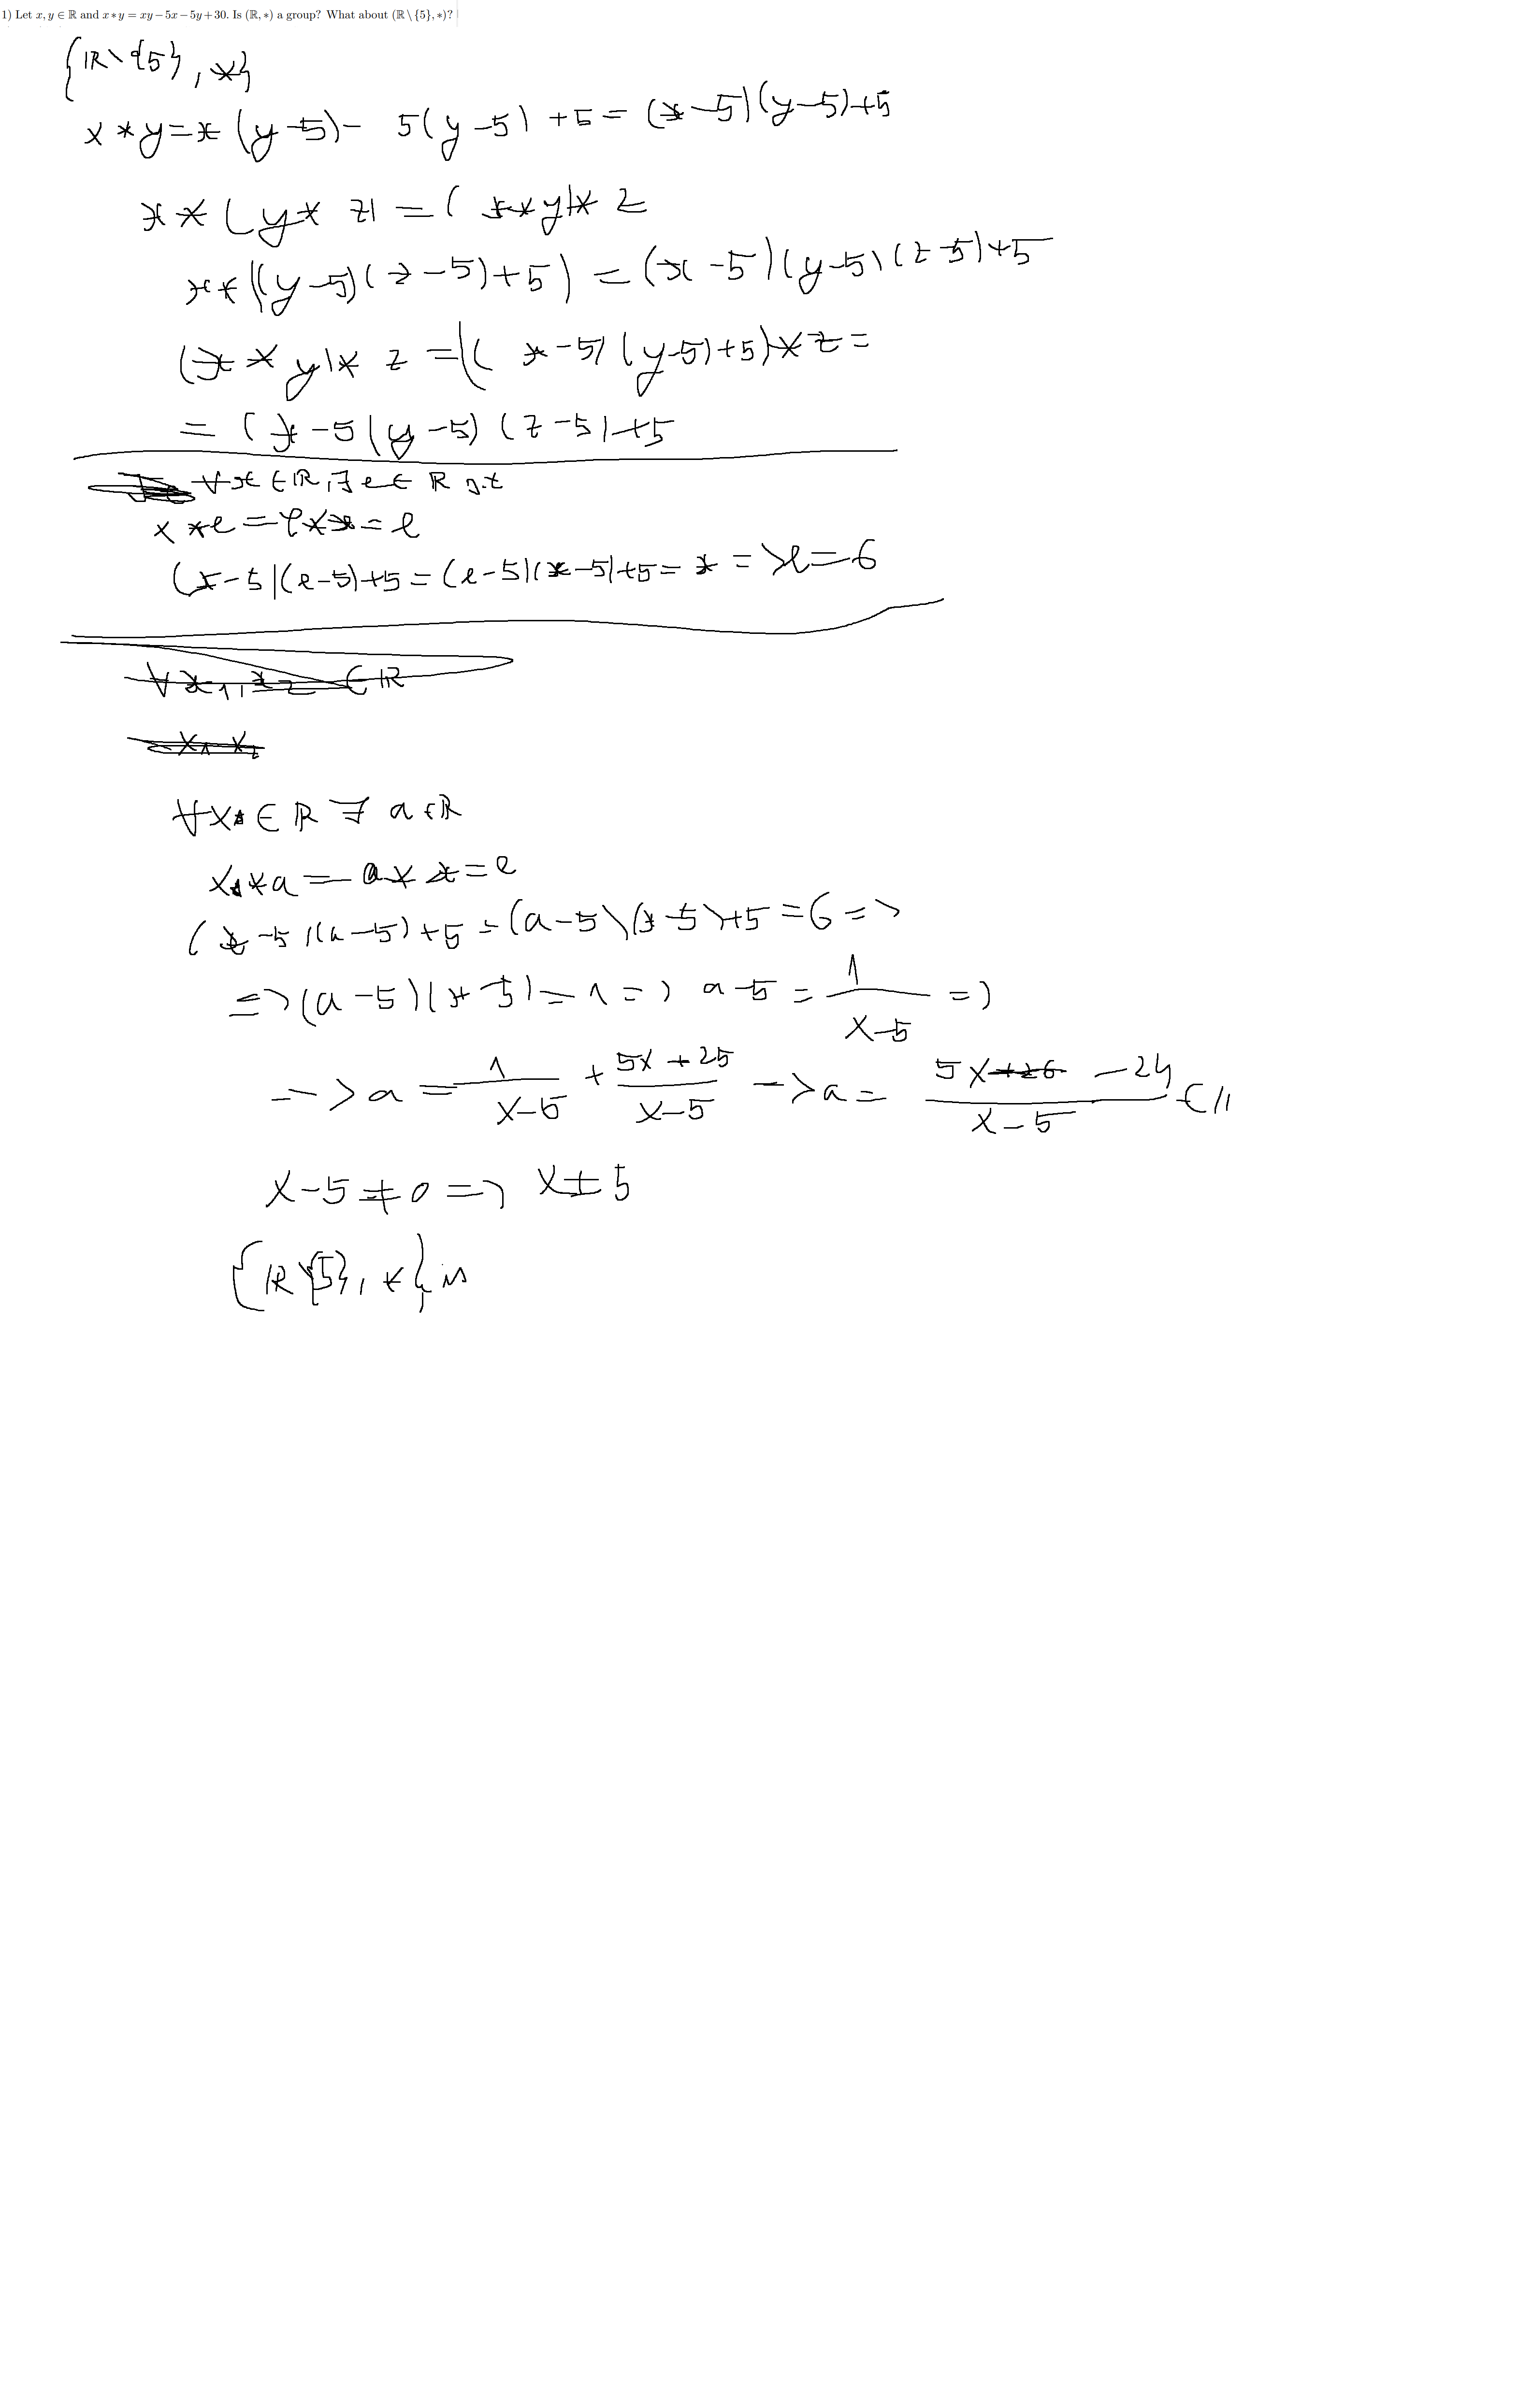 1) Let x, y ∈ ℝ and x ∗ y = xy − 5x − 5y + 30. Is (ℝ, ∗) a group? What about (ℝ \ {5}, ∗)?
{ℝ\{5}, *}
x * y = x (y - 5) - 5(y - 5) + 5 = (x - 5)(y - 5) + 5
x * (y * z) = (x * y) * z
x * ((y - 5)(z - 5) + 5) = (x - 5)(y - 5)(z - 5) + 5
(x * y) * z = ((x - 5)(y - 5) + 5) * z =
= (x - 5)(y - 5)(z - 5) + 5
∀x ∈ ℝ, ∃ e ∈ ℝ s.t
x * e = e * x = e
(x - 5)(e - 5) + 5 = (e - 5)(x - 5) + 5 = x => e = 6
∀ x1, x2 ∈ ℝ
x1 x2
∀x ∈ ℝ ∃ a ∈ ℝ
x * a = a * x = e
(x - 5)(a - 5) + 5 = (a - 5)(x - 5) + 5 = 6 =>
=> (a - 5)(x - 5) = 1 => a - 5 = 1/(x - 5) =>
=> a = 1/(x - 5) + (5x + 25)/(x - 5) -> a = (5x +26 - 24)/(x - 5) ∈
x - 5 ≠ 0 => x ≠ 5
{ℝ\{5}, *} is